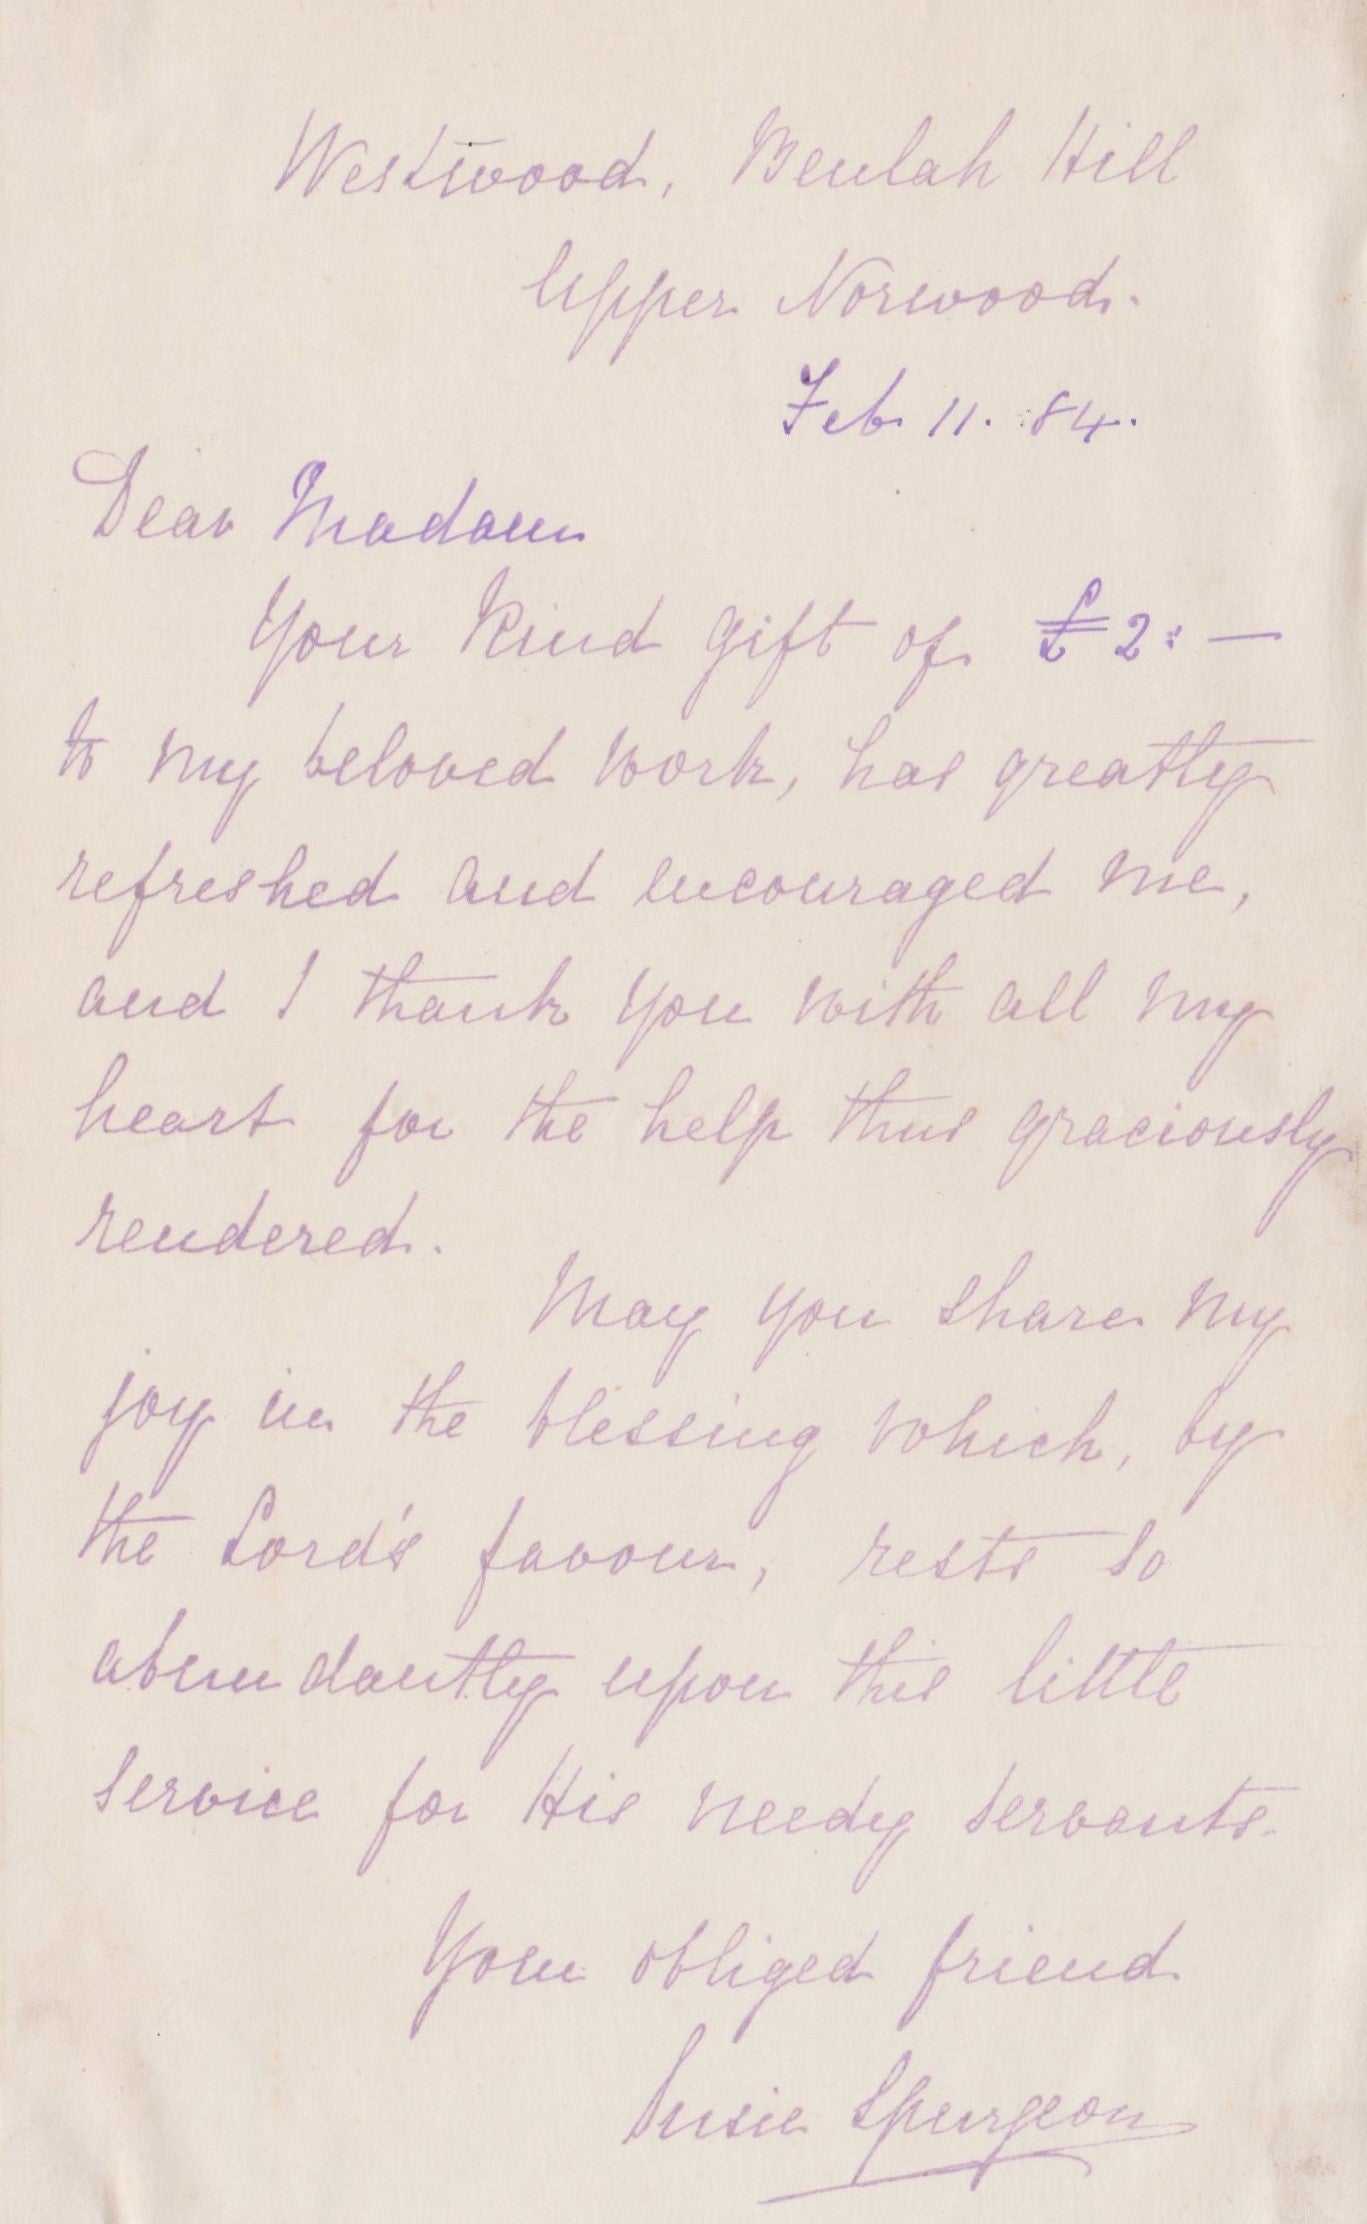 Westwood, Beulah Hill
Upper Norwood.
Feb 11. 84.
Dear Madam
Your kind gift of £2:—
to my beloved work, has greatly
refreshed and encouraged me,
and I thank you with all my
heart for the help thus graciously
rendered.
May you share my
joy in the blessing which, by
the Lord's favour, rests so
abundantly upon this little
service for His needy servants.
Your obliged friend
Susie Spurgeon